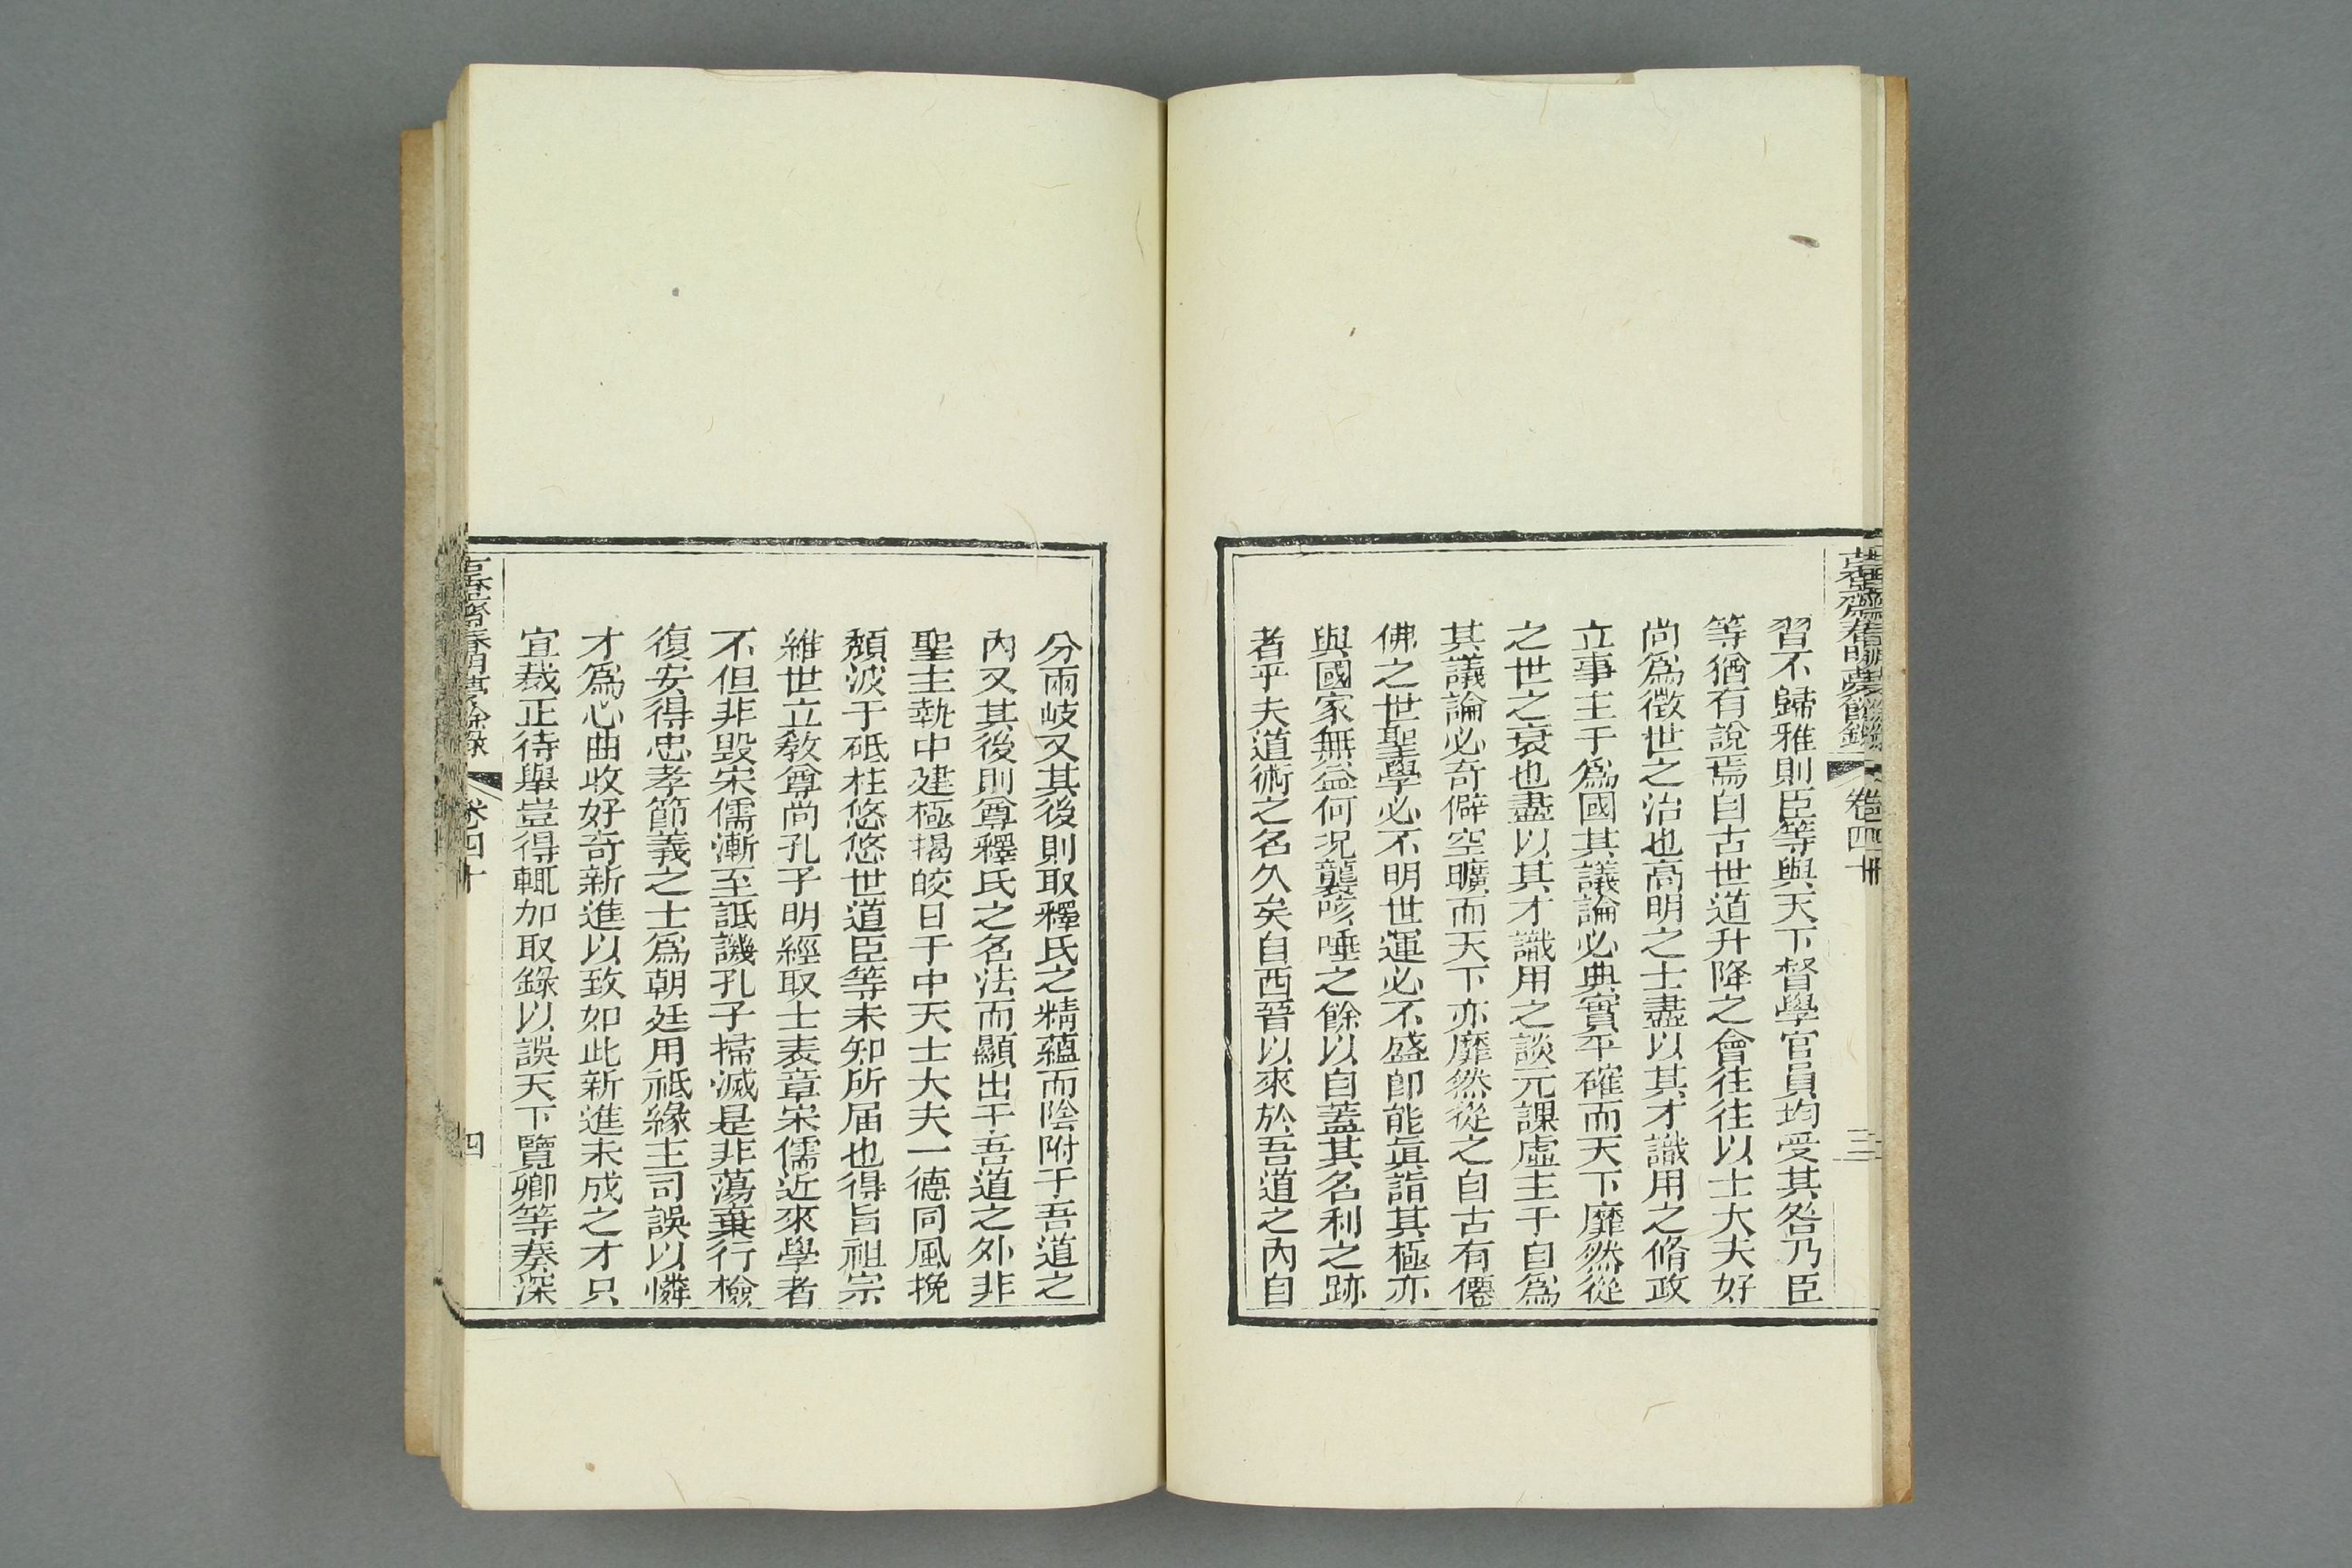 古香齋春明夢餘錄 卷四十 三
習不歸雅則臣等與天下督學官員均受其咎乃臣
等猶有說焉自古世道升降之會往往以士大夫好
尚爲徵世之治也高明之士盡以其才識用之脩政
立事主于爲國其議論必典實平確而天下靡然從
之世之衰也盡以其才識用之談元課虛主于自爲
其議論必奇僻空曠而天下亦靡然從之自古有僊
佛之世聖學必不明世運必不盛卽能眞詣其極亦
與國家無益何况襲咳唾之餘以自蓋其名利之跡
者乎夫道術之名久矣自西晉以來於吾道之內自
分兩岐又其後則取釋氏之精蘊而陰附于吾道之
內又其後則尊釋氏之名法而顯出于吾道之外非
聖主執中建極揭皎日于中天士大夫一德同風挽
頹波于砥柱悠悠世道臣等未知所届也得旨祖宗
維世立敎尊尚孔子明經取士表章宋儒近來學者
不但非毀宋儒漸至詆譏孔子掃滅是非蕩棄行檢
復安得忠孝節義之士爲朝廷用祗緣主司誤以憐
才爲心曲收好奇新進以致如此新進未成之才只
宜裁正待舉豈得輒加取錄以誤天下覽卿等奏深
古香齋春明夢餘錄 卷四十 四